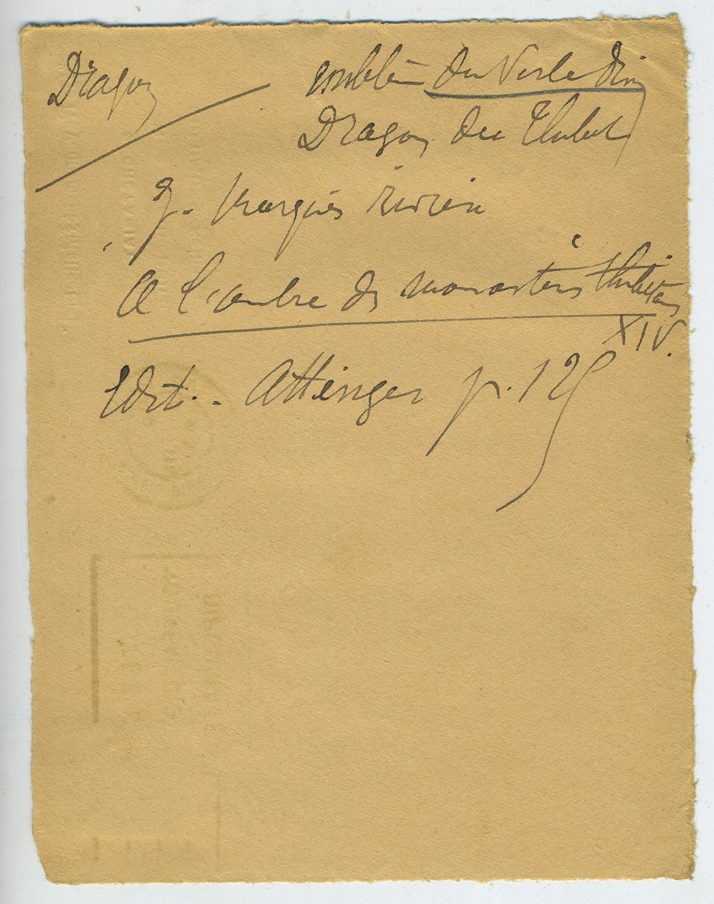 Dragon emblème du Verbe Divin
Dragon du Thibet
J. Marquès Rivière
A l'ombre des monastères thibétains
XIV.
Edit. Attinger p. 125